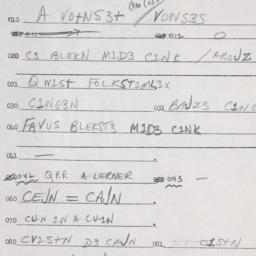 010 A VOTNS3T / VONS3S
020 C3 BLEKN M1D3 C1NK / AROUZ
021 Q N1ST FOLKST1ML3X
030 C1NG3N 031 BAUZ3 C1NG
040 FAVUS BLEKST3 M1D3 C1NK
041 —
042 QRR A LERNER 043 —
060 CEJN = CAJN
070 CWN 1N A CWN
080 CV1STN D3 CAJN 081 C1STN